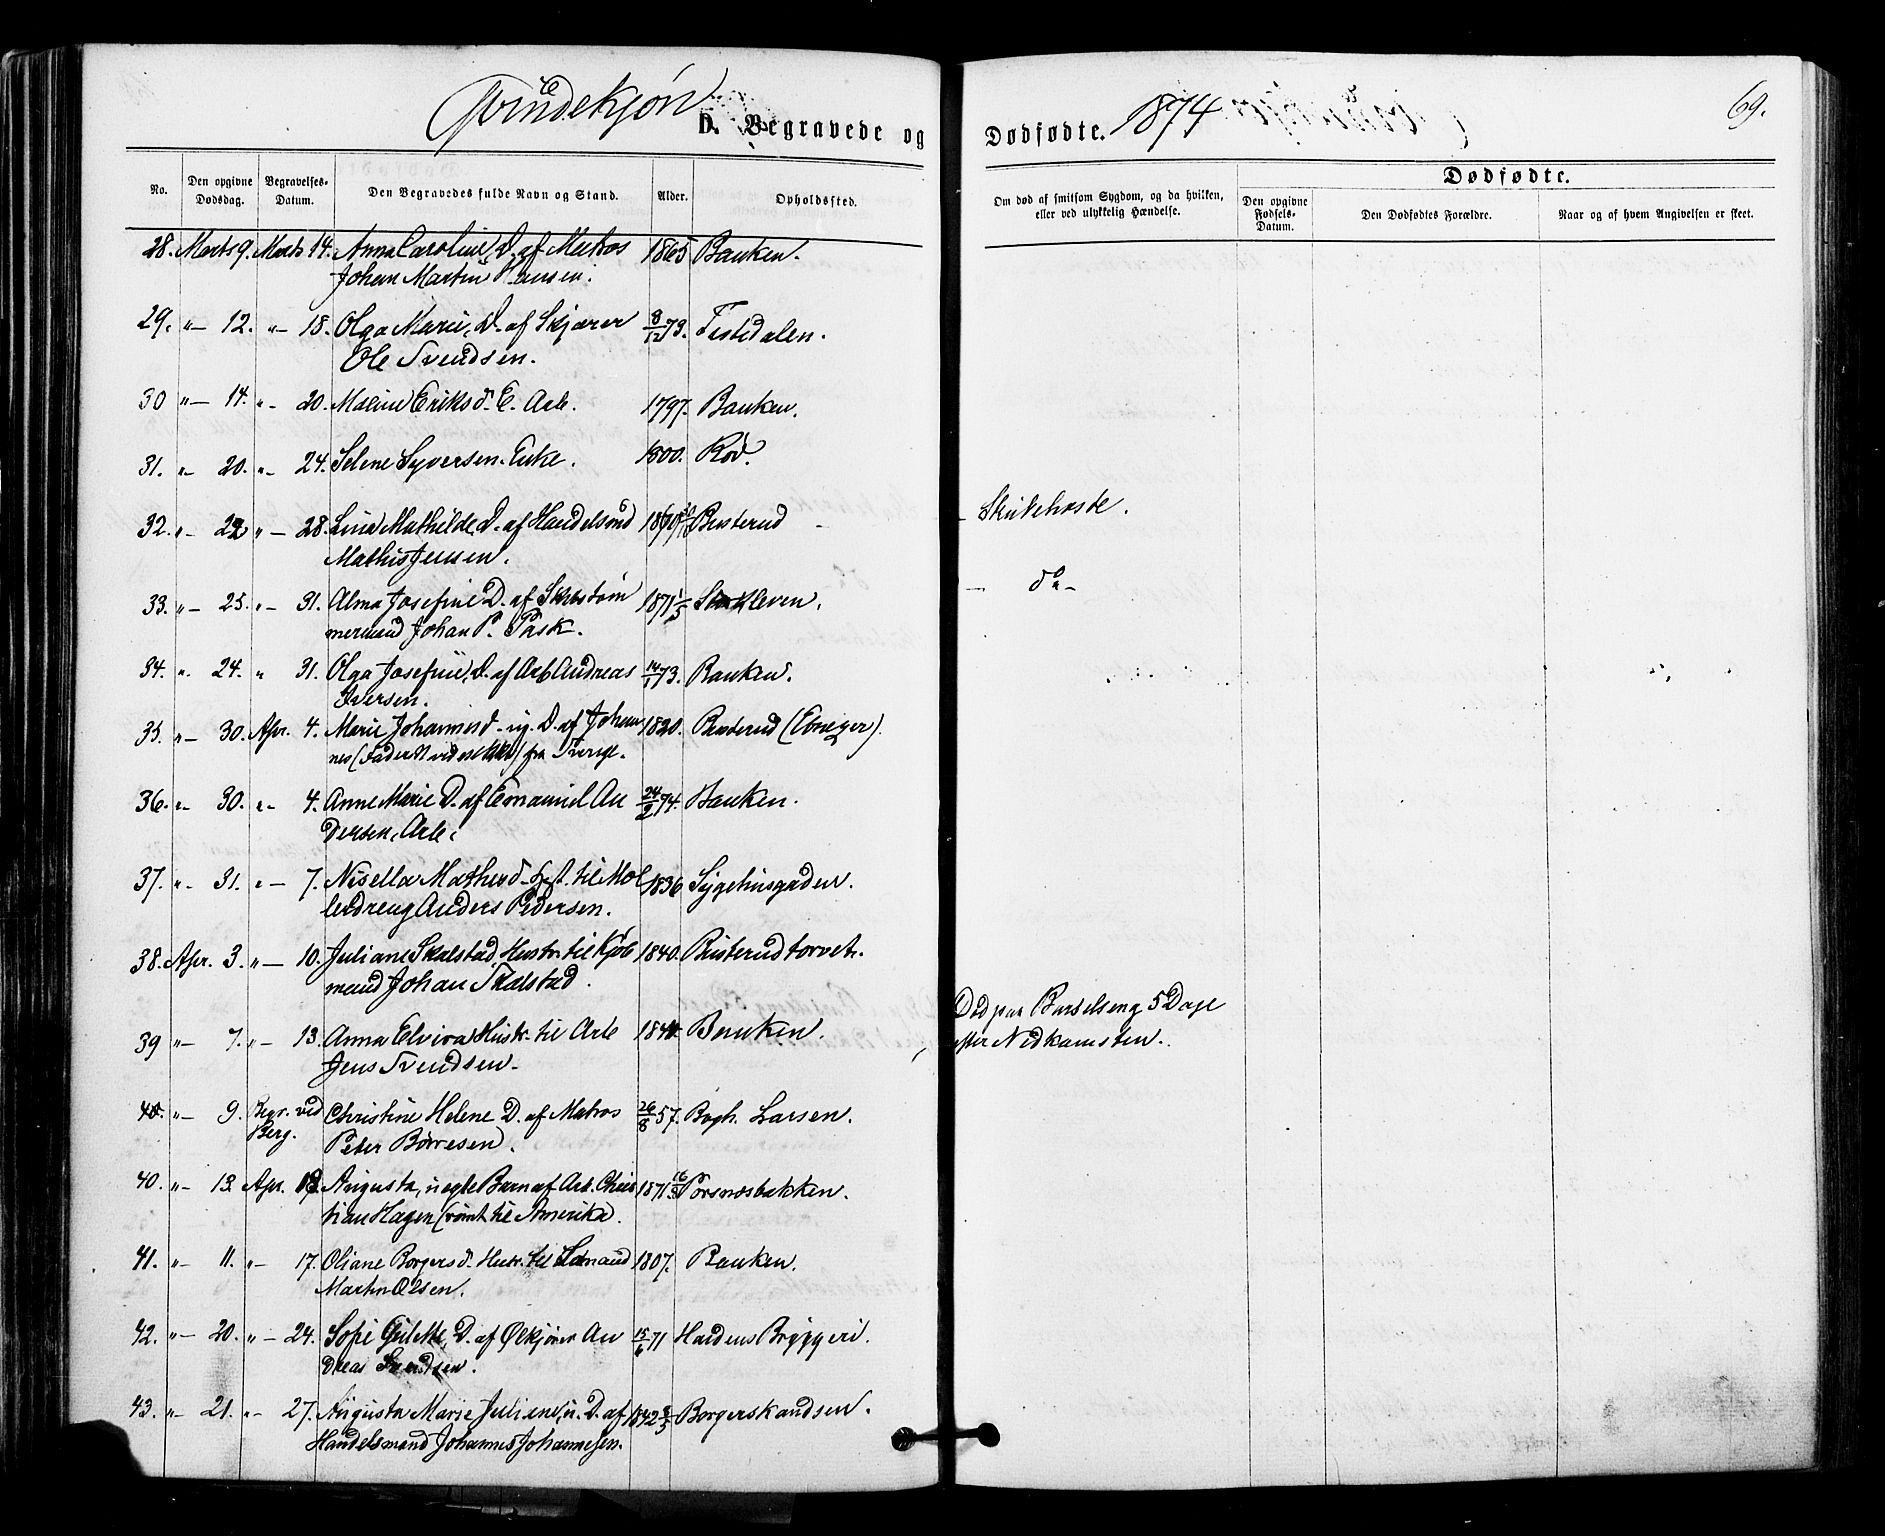 Qvindekjøn
D. Begravede og
Dødfødte. 1874
69.
No.
Den opgivne Dødsdag.
Begravelses-Datum.
Den Begravedes fulde Navn og Stand.
Alder.
Opholdssted.
Om død af smitsom Sygdom, og da hvilken, eller ved ulykkelig Hændelse.
Dødfødte.
Den opgivne Fødsels-Datum.
Den Dødfødtes Forældre.
Naar og af hvem Angivelsen er skeet.
28. Marts 9. Marts 14. Anna Caroline, D. af Matros 1865 Banken.
Johan Martin Hansen.
29. "— 12. "— 18. Olga Marie, D. af Skjærer 8/12 73. Tistedalen.
Ole Svendsen.
30 "— 14. "- 20. Maline Eriksd. E. Arb. 1797. Banken.
31. "- 20. "- 24. Helene Syversen. Enke. 1800. Rød.
32. "- 22 "— 28. Lina Mathilde, D. af Handelsmd 1870 Busterud — Skrikehoste.
Mathis Jensen.
33. "— 25. "- 31. Alma Josefine D. af Skibstøm 1871 1/5 Stenkleven. — do -
mermand Johan P. Pask.
34. "- 24. " 31. Olga Josefine, D. af Arb Andreas 14/1 73. Banken.
Iversen.
35. "— 30. Apr. 4. Marie Johannesd. ug. D. af Johan 1820. Busterud
nes (Faderen vides ikke) fra Sverige.
36. "- 30. "- 4. Anne Marie D. af Emanuel An 24/2 74. Banken.
dersen, Arb.
37. "- 31. "— 7. Nisella Mathisd. Hst. til Møl 1836 Sygehusgaden.
ledreng Anders Pedersen.
38. Apr. 3. "— 10. Juliane Skalstad, Hustr. til Kjøb 1840. Busterudtorvet.
mand Johan Skalstad.
39 "— 7. "— 13. Anna Elvira Hustr. til Arb Banken. Død paa Barselseng 5 Dage
Jens Svendsen - efter Nedkomsten.
"— 9. Begr. ved Berg. Christine Helene D. af Matros 26/8 57. Bogh. Larsen.
Peter Børresen.
40. "— 13. Apr. 18. Augusta, uegte Barn af Arb. Chris 1871 Porsnesbakken.
tian Hagen (rømt til Amerika.
41. "— 11. "— 17. Oliane Borgersd. Hustr. til Sømand 1807. Banken.
Martin Olsen.
42. "— 20. "— 24. Sofie D. af Ølkjører An 15/6 71 Haldens Bryggeri.
dreas Svendsen.
43. "— 21. "- 27. Augusta Marie Juliene, u. D. af 1842 Borgerskandsen.
Handelsmand Johannes Johannesen.